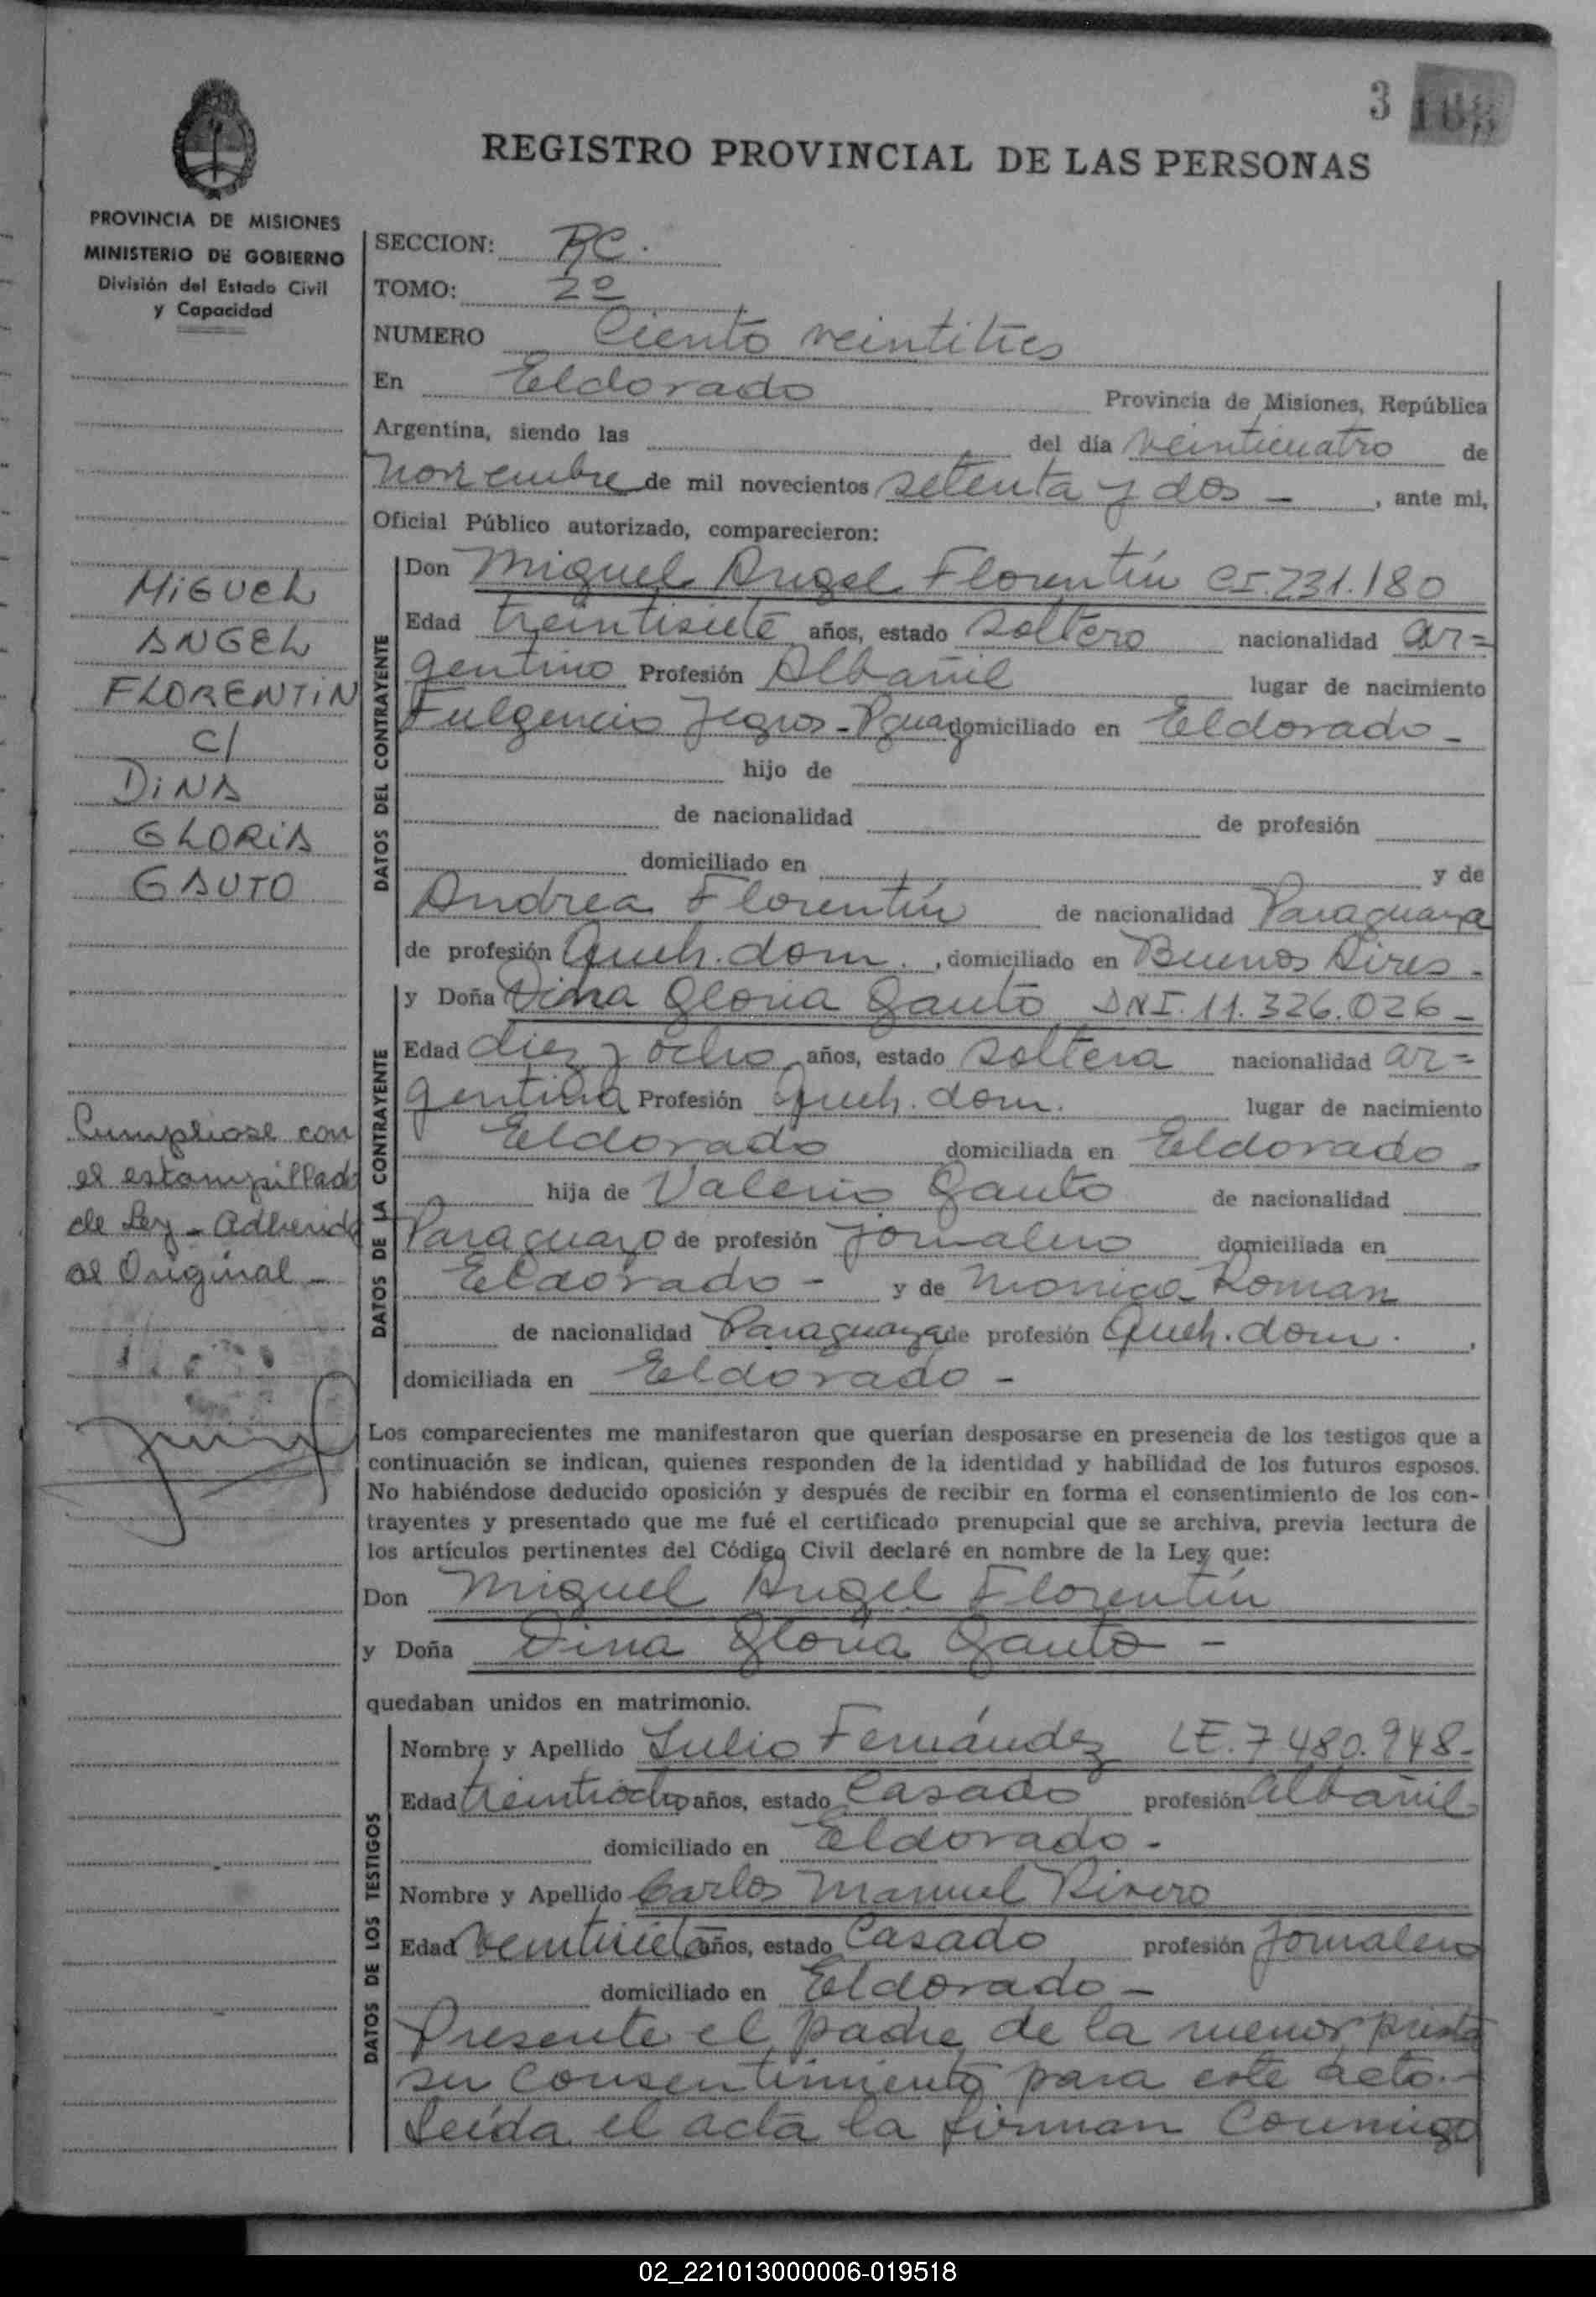 3
REGISTRO PROVINCIAL DE LAS PERSONAS
PROVINCIA DE MISIONES
MINISTERIO DE GOBIERNO
División del Estado Civil
y Capacidad
SECCION: RC.
TOMO: 2º
NUMERO Ciento veintitres
En Eldorado Provincia de Misiones, República
Argentina, siendo las del día veinticuatro de
noviembre de mil novecientos setenta y dos - , ante mi,
Oficial Público autorizado, comparecieron:
MIGUEL
ANGEL
FLORENTIN
C/
DINA
GLORIA
GAUTO
DATOS DEL CONTRAYENTE
Don Miguel Angel Florentín CI.231.180
Edad treintisiete años, estado soltero nacionalidad ar=
gentino Profesión Albañil lugar de nacimiento
Fulgencio Yegros - Pguay domiciliado en Eldorado -
hijo de
de nacionalidad de profesión
domiciliado en y de
Andrea Florentín de nacionalidad Paraguaya
de profesión Queh. dom. , domiciliado en Buenos Aires -
DATOS DE LA CONTRAYENTE
y Doña Dina Gloria Gauto DNI. 11.326.026 -
Edad diez y ocho años, estado soltera nacionalidad ar=
gentina Profesión Queh. dom. lugar de nacimiento
Eldorado domiciliada en Eldorado -
hija de Valerio Gauto de nacionalidad
Paraguayo de profesión Jornalero domiciliada en
Eldorado - y de Monica Roman
de nacionalidad Paraguaya de profesión Queh. dom. ,
domiciliada en Eldorado -
Cumpliose con
el estampillado
de Ley - Adherido
al Original -
Los comparecientes me manifestaron que querían desposarse en presencia de los testigos que a
continuación se indican, quienes responden de la identidad y habilidad de los futuros esposos.
No habiéndose deducido oposición y después de recibir en forma el consentimiento de los con-
trayentes y presentado que me fué el certificado prenupcial que se archiva, previa lectura de
los artículos pertinentes del Código Civil declaré en nombre de la Ley que:
Don Miguel Angel Florentín
y Doña Dina Gloria Gauto -
quedaban unidos en matrimonio.
DATOS DE LOS TESTIGOS
Nombre y Apellido Julio Fernández LE. 7.480.948-
Edad treintiocho años, estado Casado profesión albañil
domiciliado en Eldorado -
Nombre y Apellido Carlos Manuel Rivero
Edad veintisiete años, estado Casado profesión Jornalero
domiciliado en Eldorado -
Presente el padre de la menor presta
su consentimiento para este acto. -
Leída el acta la firman conmigo
02_221013000006-019518